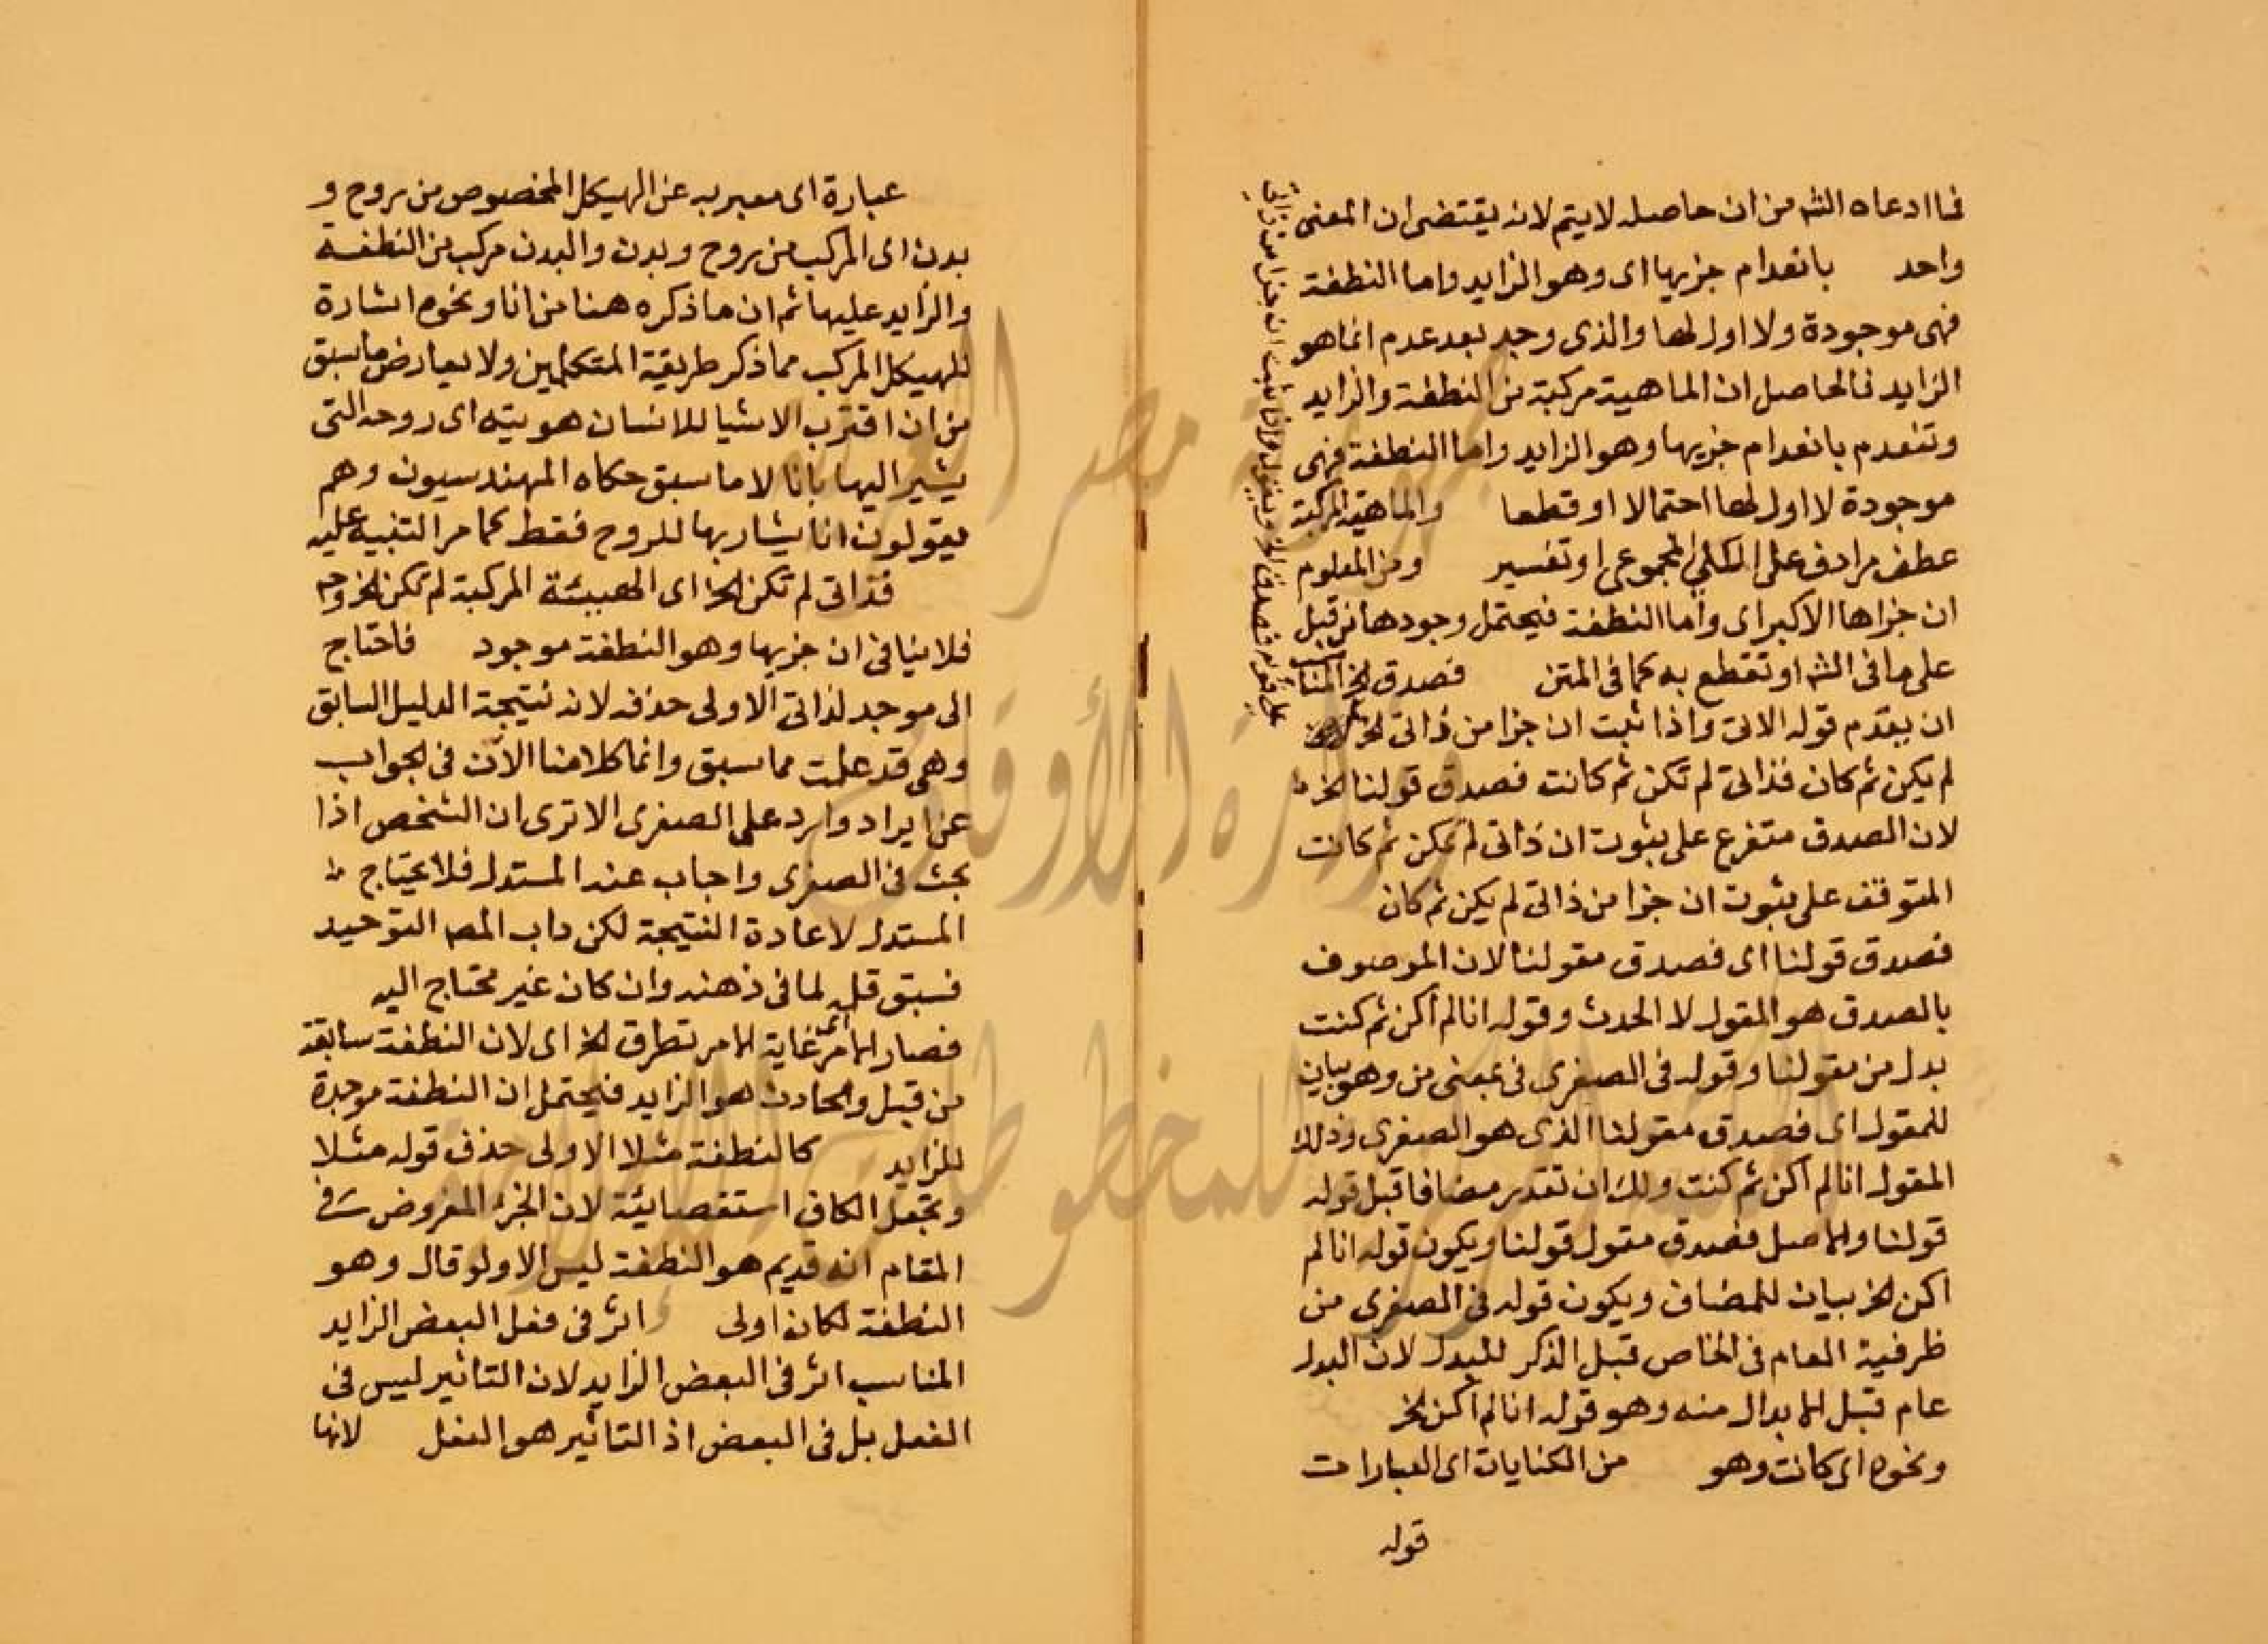 فما ادعاه الشه من ان حاصله لا يتم لانه يقتضى ان المعنى
واحد بانعدام جزيها اى وهو الزايد واما النطفة
فهى موجودة ولا اول لها والذى وجد بعد عدم انما هو
الزايد فالحاصل ان الماهية مركبة من النطفة والزايد
وتنعدم بانعدام جزيها وهو الزايد واما النطفة فهى
موجودة لا اول لها احتمالا او قطعا والماهية المركبة
عطف مرادف على الكلى المجموعى او تفسير ومن المعلوم
ان جزاها الاكبر اى واما النطفة فيحتمل وجودها من قبل
على ما فى الشه او تقطع به كما فى المتن فصدق الخ المناسب
ان يقدم قوله الاتى واذا ثبت ان جزا من ذاتى الخ
لم يكن ثم كان فذاتى لم تكن ثم كانت فصدق قولنا الخ
لان الصدق متفرع على ثبوت ان ذاتى لم تكن ثم كانت
المتوقف على ثبوت ان جزا من ذاتى لم يكن ثم كان
فصدق قولنا اى فصدق مقولنا لان الموصوف
بالصدق هو المقول لا الحدث وقوله انا لم أكن ثم كنت
بدل من مقولنا وقوله فى الصغرى فى بمعنى من وهو بيان
للمقول اى فصدق مقولنا الذى هو الصغرى وذلك
المقول انا لم أكن ثم كنت ولك ان تقدر مضافا قبل قوله
قولنا والاصل فصدق مقول قولنا ويكون قوله انا لم
اكن الخ بيان للمضاف ويكون قوله فى الصغرى من
ظرفية العام فى الخاص قبل الذكر للبدل لان البدل
عام قبل الابدال منه وهو قوله انا لم أكن الخ
ونحوه اى كانت وهو من الكنايات اى العبارات
قوله
عبارة اى معبر به عن الهيكل المخصوص من روح و
بدن اى المركب من روح وبدن والبدن مركب من النطفة
والزايد عليها ثم ان ما ذكره هنا من انا ونحوه اشارة
للهيكل المركب مما ذكر طريقة المتكلمين ولا يعارض ما سبق
من ان اقرب الاشيا للانسان هويته اى روحه التى
يشير اليها بانا لا ما سبق حكاه المهندسيون وهم
يقولون انا يشار بها للروح فقط كما مر التنبيه عليه
فذاتى لم تكن الخ اى الهيئة المركبة لم تكن الخ وح
فلا ينافى ان جزيها وهو النطفة موجود فاحتاج
الى موجد لذاتى الاولى حذفه لانه نتيجة الدليل السابق
وهى قد علمت مما سبق وانما كلامنا الآن فى الجواب
عن ايراد وارد على الصغرى الا ترى ان الشخص اذا
بحث فى الصغرى واجاب عنه المستدل فلا يحتاج
المستدل لاعادة النتيجة لكن داب المص التوحيد
فسبق قلمه لما فى ذهنه وان كان غير محتاج اليه
فصار الامر غاية الامر تطرق الخ اى لان النطفة سابقة
من قبل والحادث هو الزايد فيحتمل ان النطفة موجدة
للزايد كالنطفة مثلا الاولى حذف قوله مثلا
وتجعل الكاف استقصائية لان الجزء المفروض فى
المقام انه قديم هو النطفة ليس الا ولو قال وهو
النطفة لكان اولى اثر فى فعل البعض الزايد
المناسب اثر فى البعض الزايد لان التاثير ليس فى
الفعل بل فى البعض اذ التاثير هو الفعل لانها